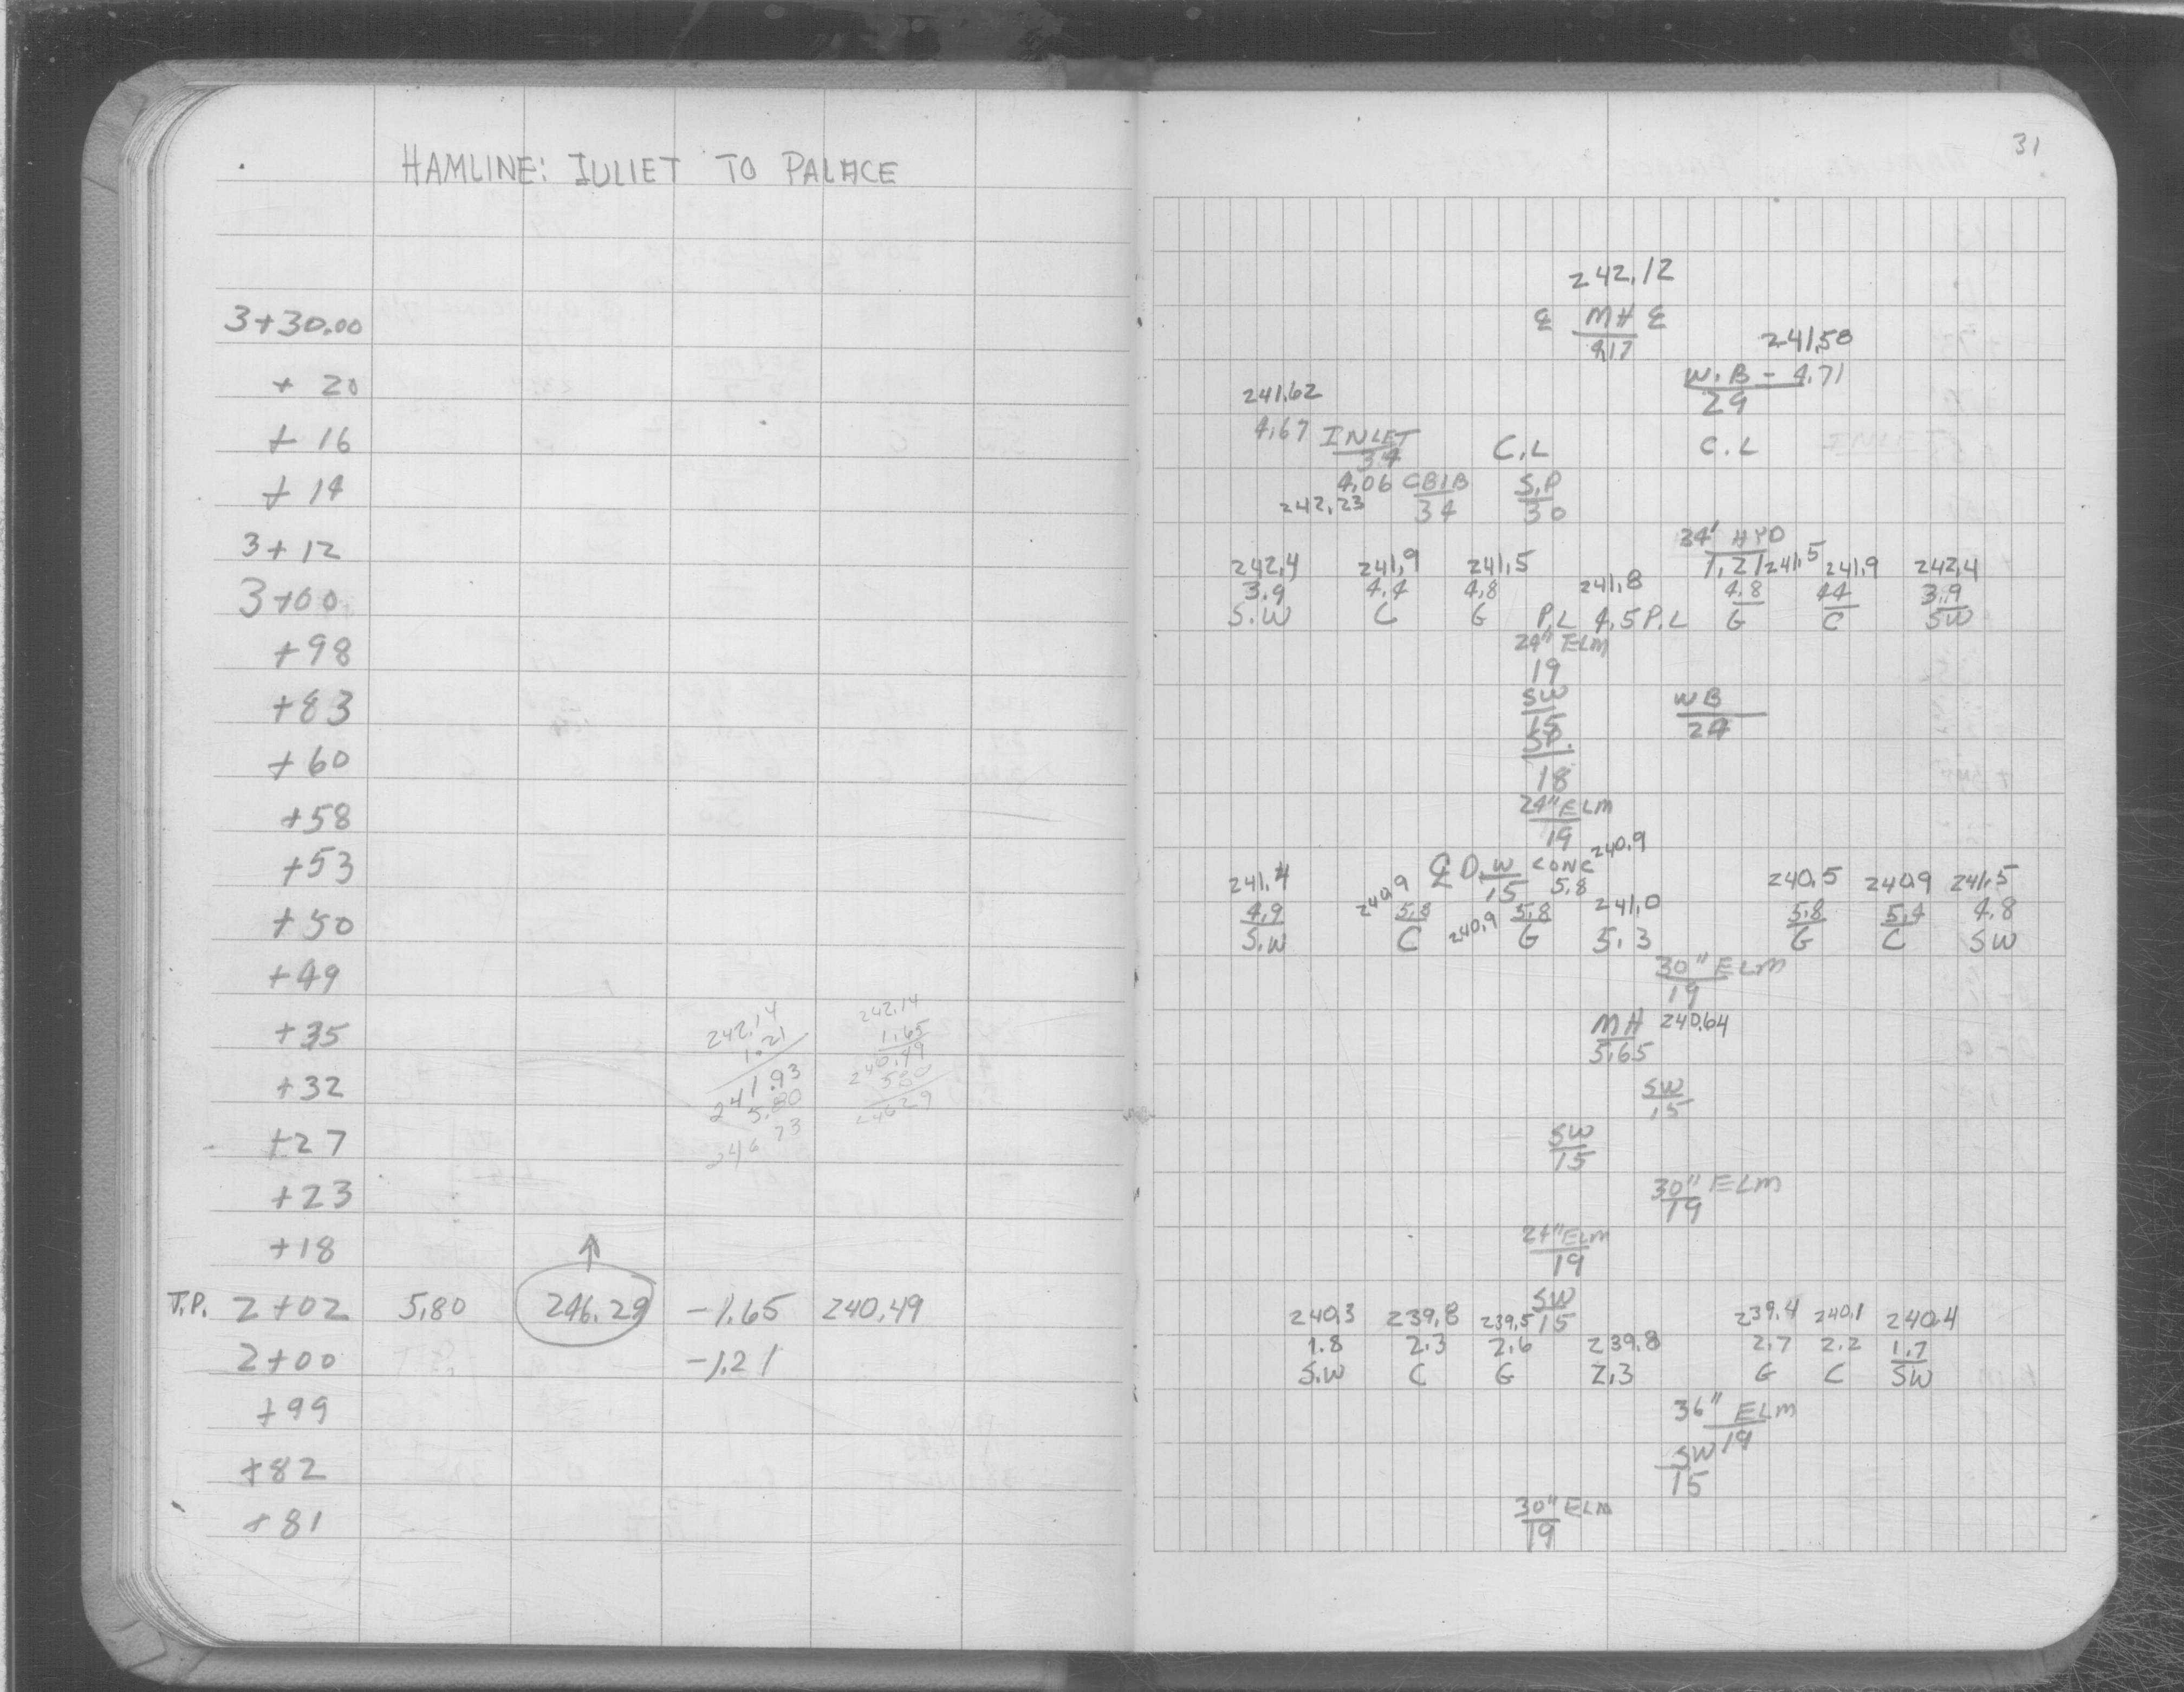 HAMLINE: JULIET TO PALACE
3+30.00
+ 20
+ 16
+ 14
3+12
3+00
+98
+83
+60
+58
+53
+50
+49
+35
+32
+27
+23
+18
T.P. 2+02 5.80 246.29 -1.65 240.49
2+00 -1.21
+99
+82
+81
242.14
1.21
241.93
5.80
246.73
242.14
1.65
240.49
580
24629
31
242.12
MH
4.17
241.58
W.B - 4.71
29
241.62
4.67 INLET
34
C.L C.L
4.06 CBIB S.P
242.23 34 30
34' HYD
1.21
242.4 241.9 241.5 241.8 241.5 241.9 242.4
3.9 4.4 4.8 4.8 44 3.9
S.W C G P.L 4.5 P.L G C SW
24" ELM
19
SW WB
15 24
S.P.
18
24" ELM
19
℄ D.W CONC 240.9
15 5.8
241.4 240.9 240.5 240.9 241.5
4.9 5.8 5.8 241.0 5.8 5.4 4.8
S.W C 240.9 G 5.3 G C SW
30" ELM
19
MH 240.64
5.65
SW
15
SW
15
30" ELM
19
24" ELM
19
SW
15
240.3 239.8 239.5 239.4 240.1 240.4
1.8 2.3 2.6 239.8 2.7 2.2 1.7
S.W C G 2.3 G C SW
36" ELM
19
SW
15
30" ELM
19